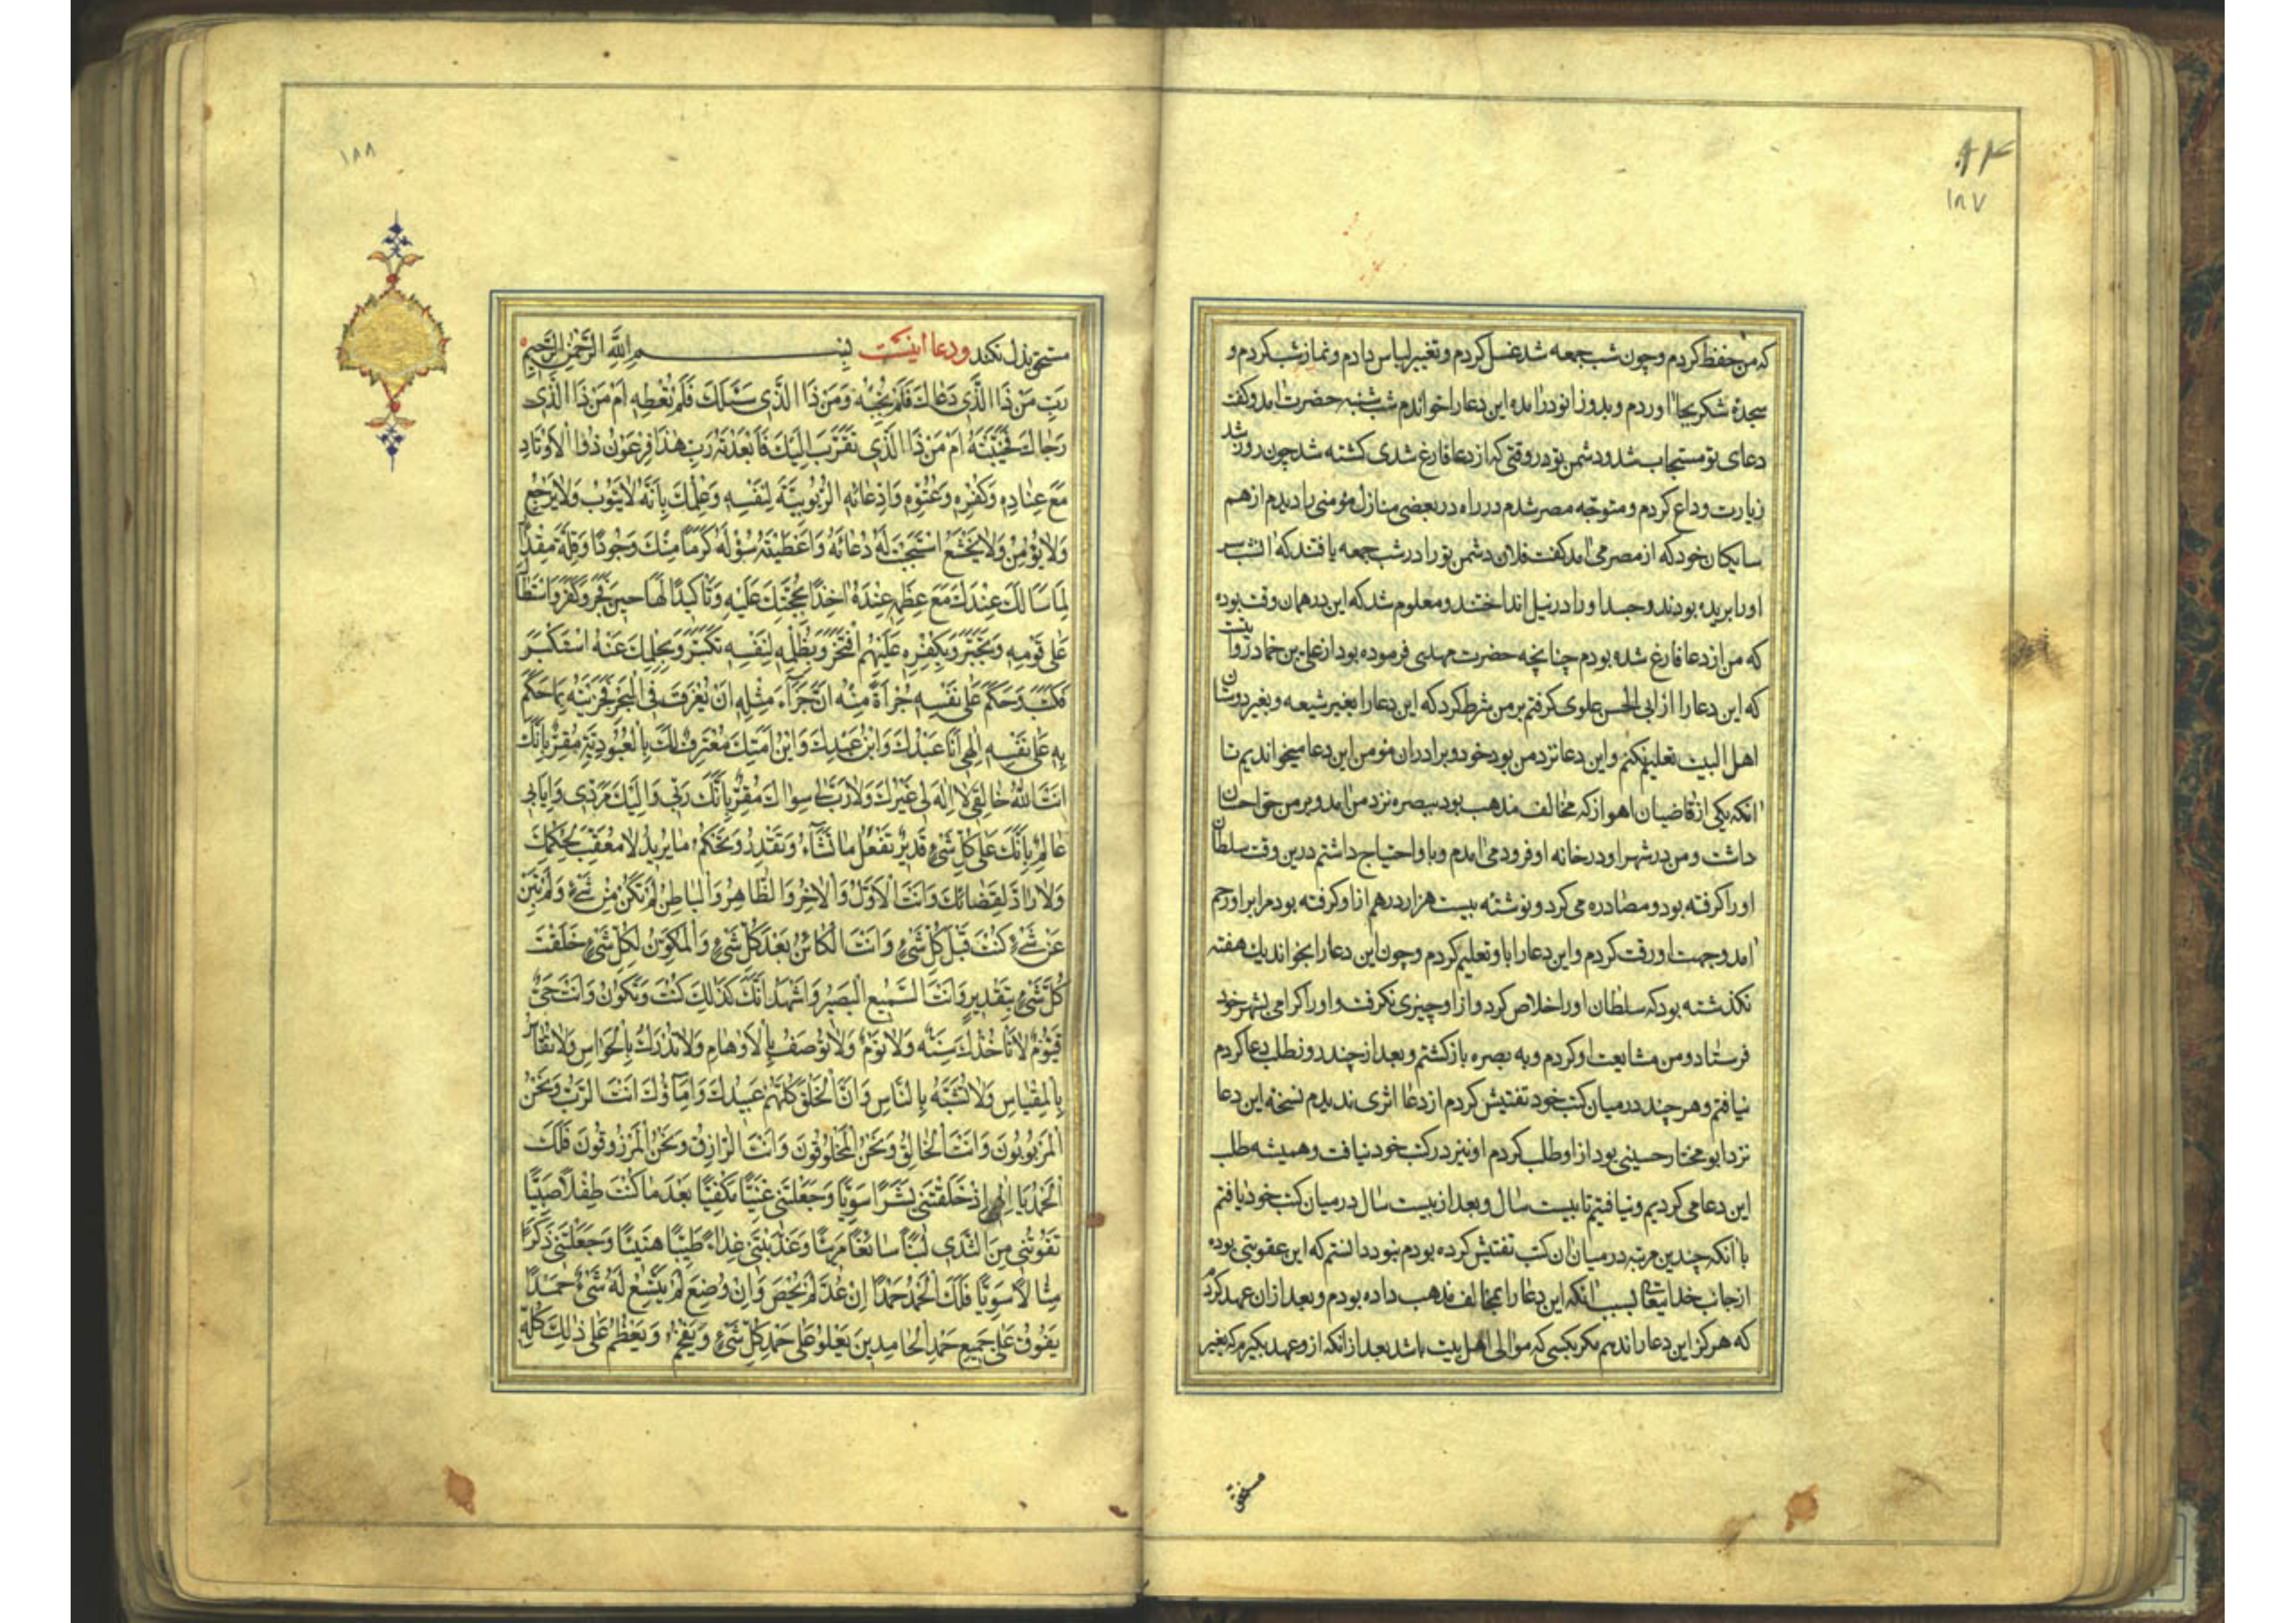 ۹۴
۱۸۷
که من حفظ کردم و چون شب جمعه شد غسل کردم و تغییر لباس دادم و نماز شب کردم و
سجدهٔ شکر بجا اوردم و بدو زانو درامده این دعا را خواندم شب شنبه حضرت امد و کفت
دعای تو مستجاب شد و دشمن تو در وقتی که از دعا فارغ شدی کشته شد چون روز شد
زیارت وداع کردم و متوجه مصر شدم در راه در بعضی منازل مؤمنی را دیدم از هم
سایکان خود که از مصر می امد کفت فلان دشمن تو را در شب جمعه یافتند که انشب سر
او را بریده بودند و جسد او را در نیل انداختند و معلوم شد که این در همان وقت بوده
که من از دعا فارغ شده بودم چنانچه حضرت مهدی فرموده بود از علی بن حماد روایتست
که این دعا را از ابی الحسن علوی کرفتم بر من شرط کرد که این دعا را بغیر شیعه و بغیر دوستان
اهل البیت تعلیم نکنم و این دعا نزد من بود خود و برادران مؤمن این دعا میخواندیم تا
انکه یکی از قاضیان اهواز که مخالف مذهب بود ببصره نزد من امد و بر من حق احسان
داشت و من در شهر او در خانه او فرود می امدم و باو احتیاج داشتم درین وقت سلطان
او را کرفته بود و مصادره می کرد و نوشتهٔ بیست هزار درهم ازاو کرفته بود مرا بر او رحم
امد و جهت او رقت کردم و این دعا را باو تعلیم کردم و چون این دعا را بخواند یک هفته
نکذشته بود که سلطان او را خلاص کرد و ازاو چیزی نکرفت و او را کرامی بشهر خود
فرستاد و من مشایعت او کردم و به بصره بازکشتم و بعد از چند روز طلب دعا کردم
نیافتم و هر چند در میان کتب خود تفتیش کردم از دعا اثری ندیدم نسخه این دعا
نزد ابو مختار حسینی بود ازاو طلب کردم او نیز در کتب خود نیافت و همیشه طلب
این دعا می کردیم و نیافتیم تا بیست سال و بعد از بیست سال در میان کتب خود یافتم
با انکه چندین مرتبه در میان ان کتب تفتیش کرده بودم نبود دانستم که این عقوبتی بوده
ازجانب خدایتعالی بسبب انکه این دعا را بمخالف مذهب داده بودم و بعد ازان عهد کردم
که هرکز این دعا را ندهم مکر بکسی که موالی اهل بیت باشد بعد ازانکه ازو عهد بکیرم که بغیر
مستحق
۱۸۸
مستحق بذل نکند ودعا اینست بِسْمِ اللَّهِ الرَّحْمٰنِ الرَّحِیمِ
رَبِّ مَنْ ذَا الَّذِی دَعَاكَ فَلَمْ تُجِبْهُ وَمَنْ ذَا الَّذِی سَئَلَكَ فَلَمْ تُعْطِهِ اَمْ مَنْ ذَا الَّذِی
رَجَاكَ فَخَیَّبْتَهُ اَمْ مَنْ ذَا الَّذِی تَقَرَّبَ اِلَیْكَ فَاَبْعَدْتَهُ رَبِّ هٰذَا فِرْعَوْنُ ذُوا الْاَوْتَادِ
مَعَ عِنَادِهِ وَکُفْرِهِ وَعُتُوِّهِ وَاِذْعَائِهِ الرُّبُوبِیَّةَ لِنَفْسِهِ وَعِلْمِكَ بِاَنَّهُ لَا یَتُوبُ وَلَا یَرْجِعُ
وَلَا یُؤْمِنُ وَلَا یَخْشَعُ اسْتَجَبْتَ لَهُ دُعَائَهُ وَاَعْطَیْتَهُ سُؤْلَهُ کَرَمًا مِنْكَ وَجُودًا وَقِلَّةَ مِقْدَارٍ
لِمَا سَاَلَكَ عِنْدَكَ مَعَ عِظَمِهِ عِنْدَهُ اَخْذًا بِحُجَّتِكَ عَلَیْهِ وَتَاْکِیدًا لَهَا حِینَ فَجَرَ وَکَفَرَ وَاسْتَطَالَ
عَلٰی قَوْمِهِ وَتَجَبَّرَ وَبِکُفْرِهِ عَلَیْهِمُ افْتَخَرَ وَبِظُلْمِهِ لِنَفْسِهِ تَکَبَّرَ وَبِحِلْمِكَ عَنْهُ اسْتَکْبَرَ
فَکَتَبَ وَحَکَمَ عَلٰی نَفْسِهِ جُرْاَةً مِنْهُ اَنَّ جَزَاءَ مِثْلِهِ اَنْ یُغْرَقَ فِی الْبَحْرِ فَجَزَیْتَهُ بِمَا حَکَمَ
بِهِ عَلٰی نَفْسِهِ اِلٰهِی اَنَا عَبْدُكَ وَابْنُ عَبْدِكَ وَابْنُ اَمَتِكَ مُعْتَرِفٌ لَكَ بِالْعُبُودِیَّةِ مُقِرٌّ بِاَنَّكَ
اَنْتَ اللَّهُ خَالِقِی لَا اِلٰهَ لِی غَیْرُكَ وَلَا رَبَّ لِی سِوَاكَ مُقِرٌّ بِاَنَّكَ رَبِّی وَاِلَیْكَ مَرَدِّی وَاِیَابِی
عَالِمٌ بِاَنَّكَ عَلٰی کُلِّ شَیْءٍ قَدِیرٌ تَفْعَلُ مَا تَشَاءُ وَتَقْدِرُ وَتَحْکُمُ مَا یُرِیدُ لَا مُعَقِّبَ لِحُکْمِكَ
وَلَا رَادَّ لِقَضَائِكَ وَاَنْتَ الْاَوَّلُ وَالْاٰخِرُ وَالظَّاهِرُ وَالْبَاطِنُ لَمْ تَکُنْ مِنْ شَیْءٍ وَلَمْ تَبِنْ
عَنْ شَیْءٍ کُنْتَ قَبْلَ کُلِّ شَیْءٍ وَاَنْتَ الْکَائِنُ بَعْدَ کُلِّ شَیْءٍ وَالْمُکَوِّنُ لِکُلِّ شَیْءٍ خَلَقْتَ
کُلَّ شَیْءٍ بِتَقْدِیرٍ وَاَنْتَ السَّمِیعُ الْبَصِیرُ وَاَشْهَدُ اَنَّكَ کَذٰلِكَ کُنْتَ وَتَکُونُ وَاَنْتَ حَیٌّ
قَیُّومٌ لَا تَاْخُذُكَ سِنَةٌ وَلَا نَوْمٌ وَلَا تُوصَفُ بِالْاَوْهَامِ وَلَا تُدْرَكُ بِالْحَوَاسِّ وَلَا تُقَاسُ
بِالْمِقْیَاسِ وَلَا تُشَبَّهُ بِالنَّاسِ وَاَنَّ الْخَلْقَ کُلَّهُمْ عَبِیدُكَ وَاِمَاؤُكَ اَنْتَ الرَّبُّ وَنَحْنُ
الْمَرْبُوبُونَ وَاَنْتَ الْخَالِقُ وَنَحْنُ الْمَخْلُوقُونَ وَاَنْتَ الرَّازِقُ وَنَحْنُ الْمَرْزُوقُونَ فَلَكَ
الْحَمْدُ یَا اِلٰهِی اِذْ خَلَقْتَنِی بَشَرًا سَوِیًّا وَجَعَلْتَنِی غَنِیًّا مَکْفِیًّا بَعْدَ مَا کُنْتُ طِفْلًا صَبِیًّا
تَقُوتُنِی مِنَ الثَّدْیِ لَبَنًا سَائِغًا مَرِیئًا وَغَذَّیْتَنِی غِذَاءً طَیِّبًا هَنِیئًا وَجَعَلْتَنِی ذَکَرًا
مِثَالًا سَوِیًّا فَلَكَ الْحَمْدُ حَمْدًا اِنْ عُدَّ لَمْ یُحْصَ وَاِنْ وُضِعَ لَمْ یَتَّسِعْ لَهُ شَیْءٌ حَمْدًا
یَفُوقُ عَلٰی جَمِیعِ حَمْدِ الْحَامِدِینَ یَعْلُو عَلٰی حَمْدِ کُلِّ شَیْءٍ وَیَفْخُمُ وَیَعْظُمُ عَلٰی ذٰلِكَ کُلِّهِ